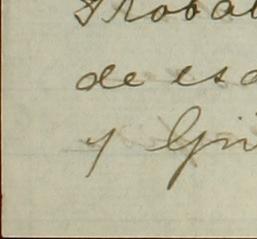 Probab
de esc
y Gri